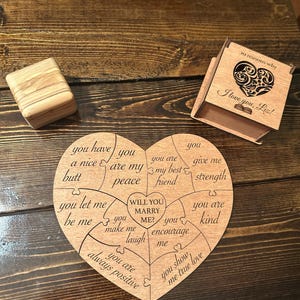 30 reasons why
I love you, Liz!
you have
a nice
butt
you
are my
peace
you are
my best
friend
you
give me
strength
you let me
be me
WILL YOU
MARRY
ME?
you are
kind
you
make me
laugh
you
encourage
me
you are
always positive
you show
me true love